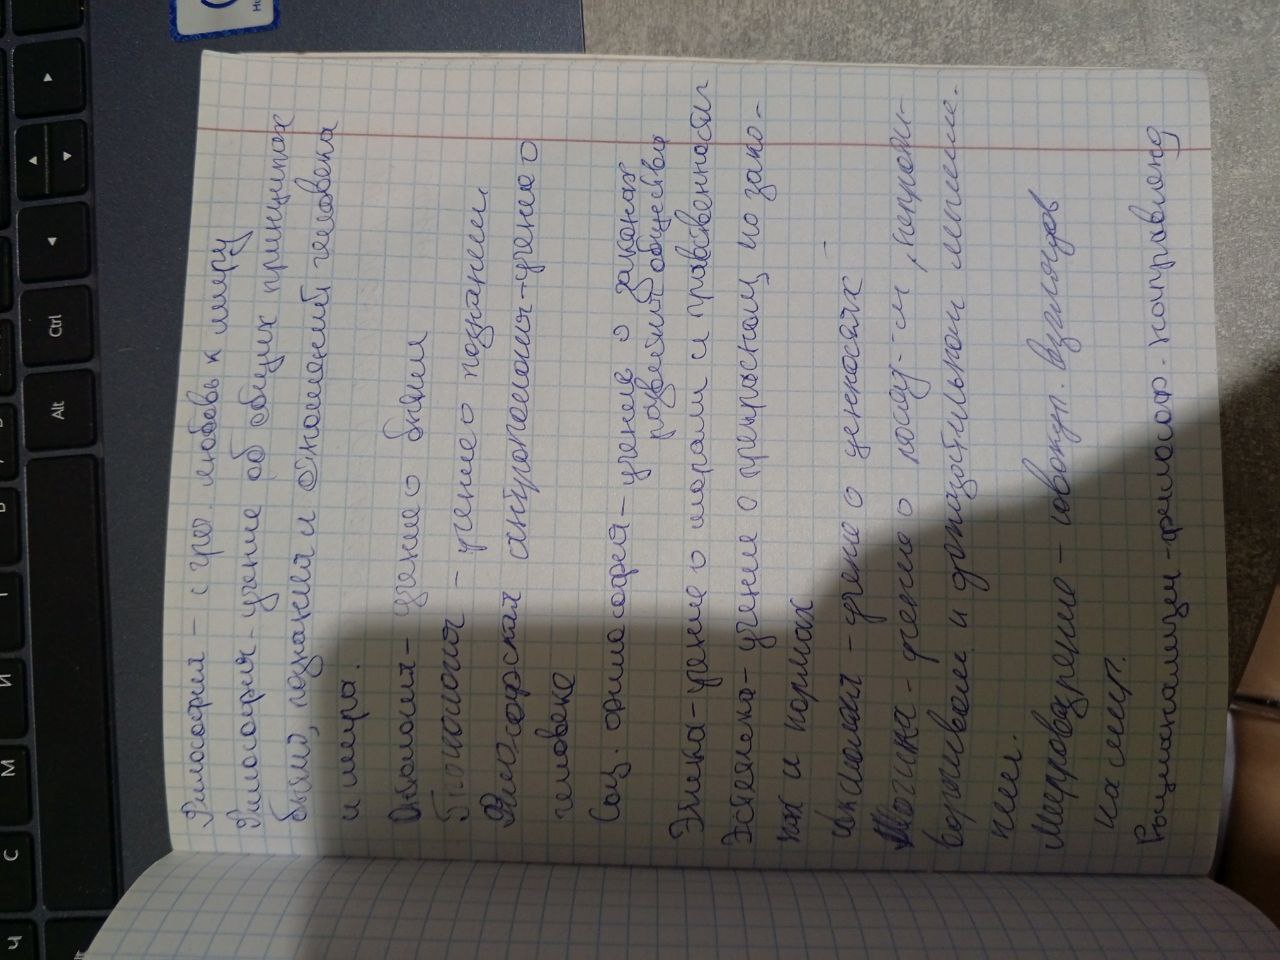 Философия – с гре. любовь к миру
Философия - учение об общих принципах
бытия, познания и отношений человека
и мира.
Онтология – учение о бытии
Гносология – учение о познании
Философская антропология – учение о
человеке
Соц. философия – учение о законах
развития общества
Этика – учение о морали и нравственности
Эстетика – учение о прекрасном, по зако-
нах и нормах
Аксиология – учение о ценностях
Логика – учение о послед-м, непроти-
воречивом и доказательном мышле-
нии.
Мировоззрение – совокуп. взглядов
на мир.
Рационализм – философ. направлен
Ctrl
Alt
И
М
С
Ч